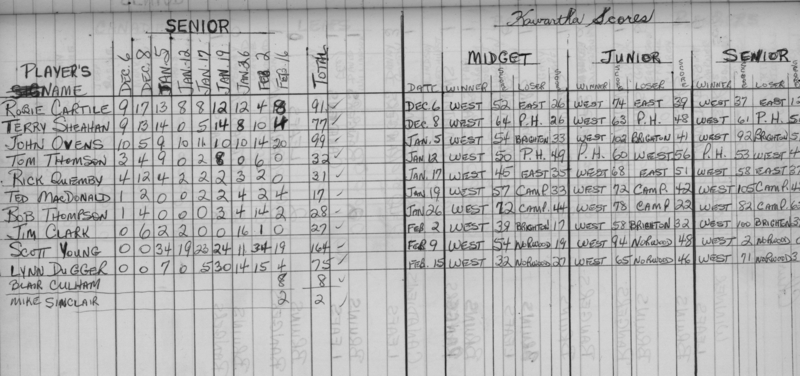 SENIOR
Kawartha Scores
PLAYER'S NAME DEC. 6 DEC. 8 JAN. 5 JAN. 12 JAN. 17 JAN. 19 JAN. 26 FEB 2 FEB. 16 TOTAL
MIDGET JUNIOR SENIOR
DATE WINNER LOSER WINNER LOSER WINNER LOSER
ROBIE CARTILE 9 17 13 8 8 12 12 4 8 91 ✓
DEC. 6 WEST 52 EAST 26 WEST 74 EAST 39 WEST 37 EAST
TERRY SHEAHAN 9 13 14 0 5 14 8 10 4 77 ✓
DEC. 8 WEST 64 P.H. 26 WEST 63 P.H. 48 WEST 61 P.H.
JOHN OVENS 9 5 9 10 11 10 10 14 20 99 ✓
JAN. 5 WEST 54 BRIGHTON 33 WEST 102 BRIGHTON 41 WEST 92 BRIGHTON
TOM THOMSON 3 4 9 0 2 8 0 6 0 32 ✓
JAN 12 WEST 50 P.H. 49 P.H. 60 WEST 56 P.H. 53 WEST
RICK QUEMBY 4 12 4 2 2 2 3 2 0 31 ✓
JAN. 17 WEST 45 EAST 35 WEST 68 EAST 51 WEST 58 EAST
TED MACDONALD 1 2 0 0 2 2 4 2 4 17 ✓
JAN 19 WEST 57 CAMP. 33 WEST 72 CAMP. 42 WEST 105 CAMP.
BOB THOMPSON 1 4 0 0 0 3 4 14 2 28 ✓
JAN 26 WEST 72 CAMP. 44 WEST 78 CAMP 22 WEST 82 CAMP.
JIM CLARK 0 6 2 2 0 0 16 1 0 27 ✓
FEB. 2 WEST 39 BRIGHTON 17 WEST 58 BRIGHTON 32 WEST 100 BRIGHTON
SCOTT YOUNG 0 0 34 19 23 24 11 34 19 164 ✓
FEB 9 WEST 54 NORWOOD 19 WEST 94 NORWOOD 48 WEST 2 NORWOOD
LYNN DUGGER 0 0 7 0 5 30 14 15 4 75 ✓
FEB. 15 WEST 32 NORWOOD 27 WEST 65 NORWOOD 46 WEST 71 NORWOOD
BLAIR CULHAM 8 8 ✓
MIKE SINCLAIR 2 2 ✓